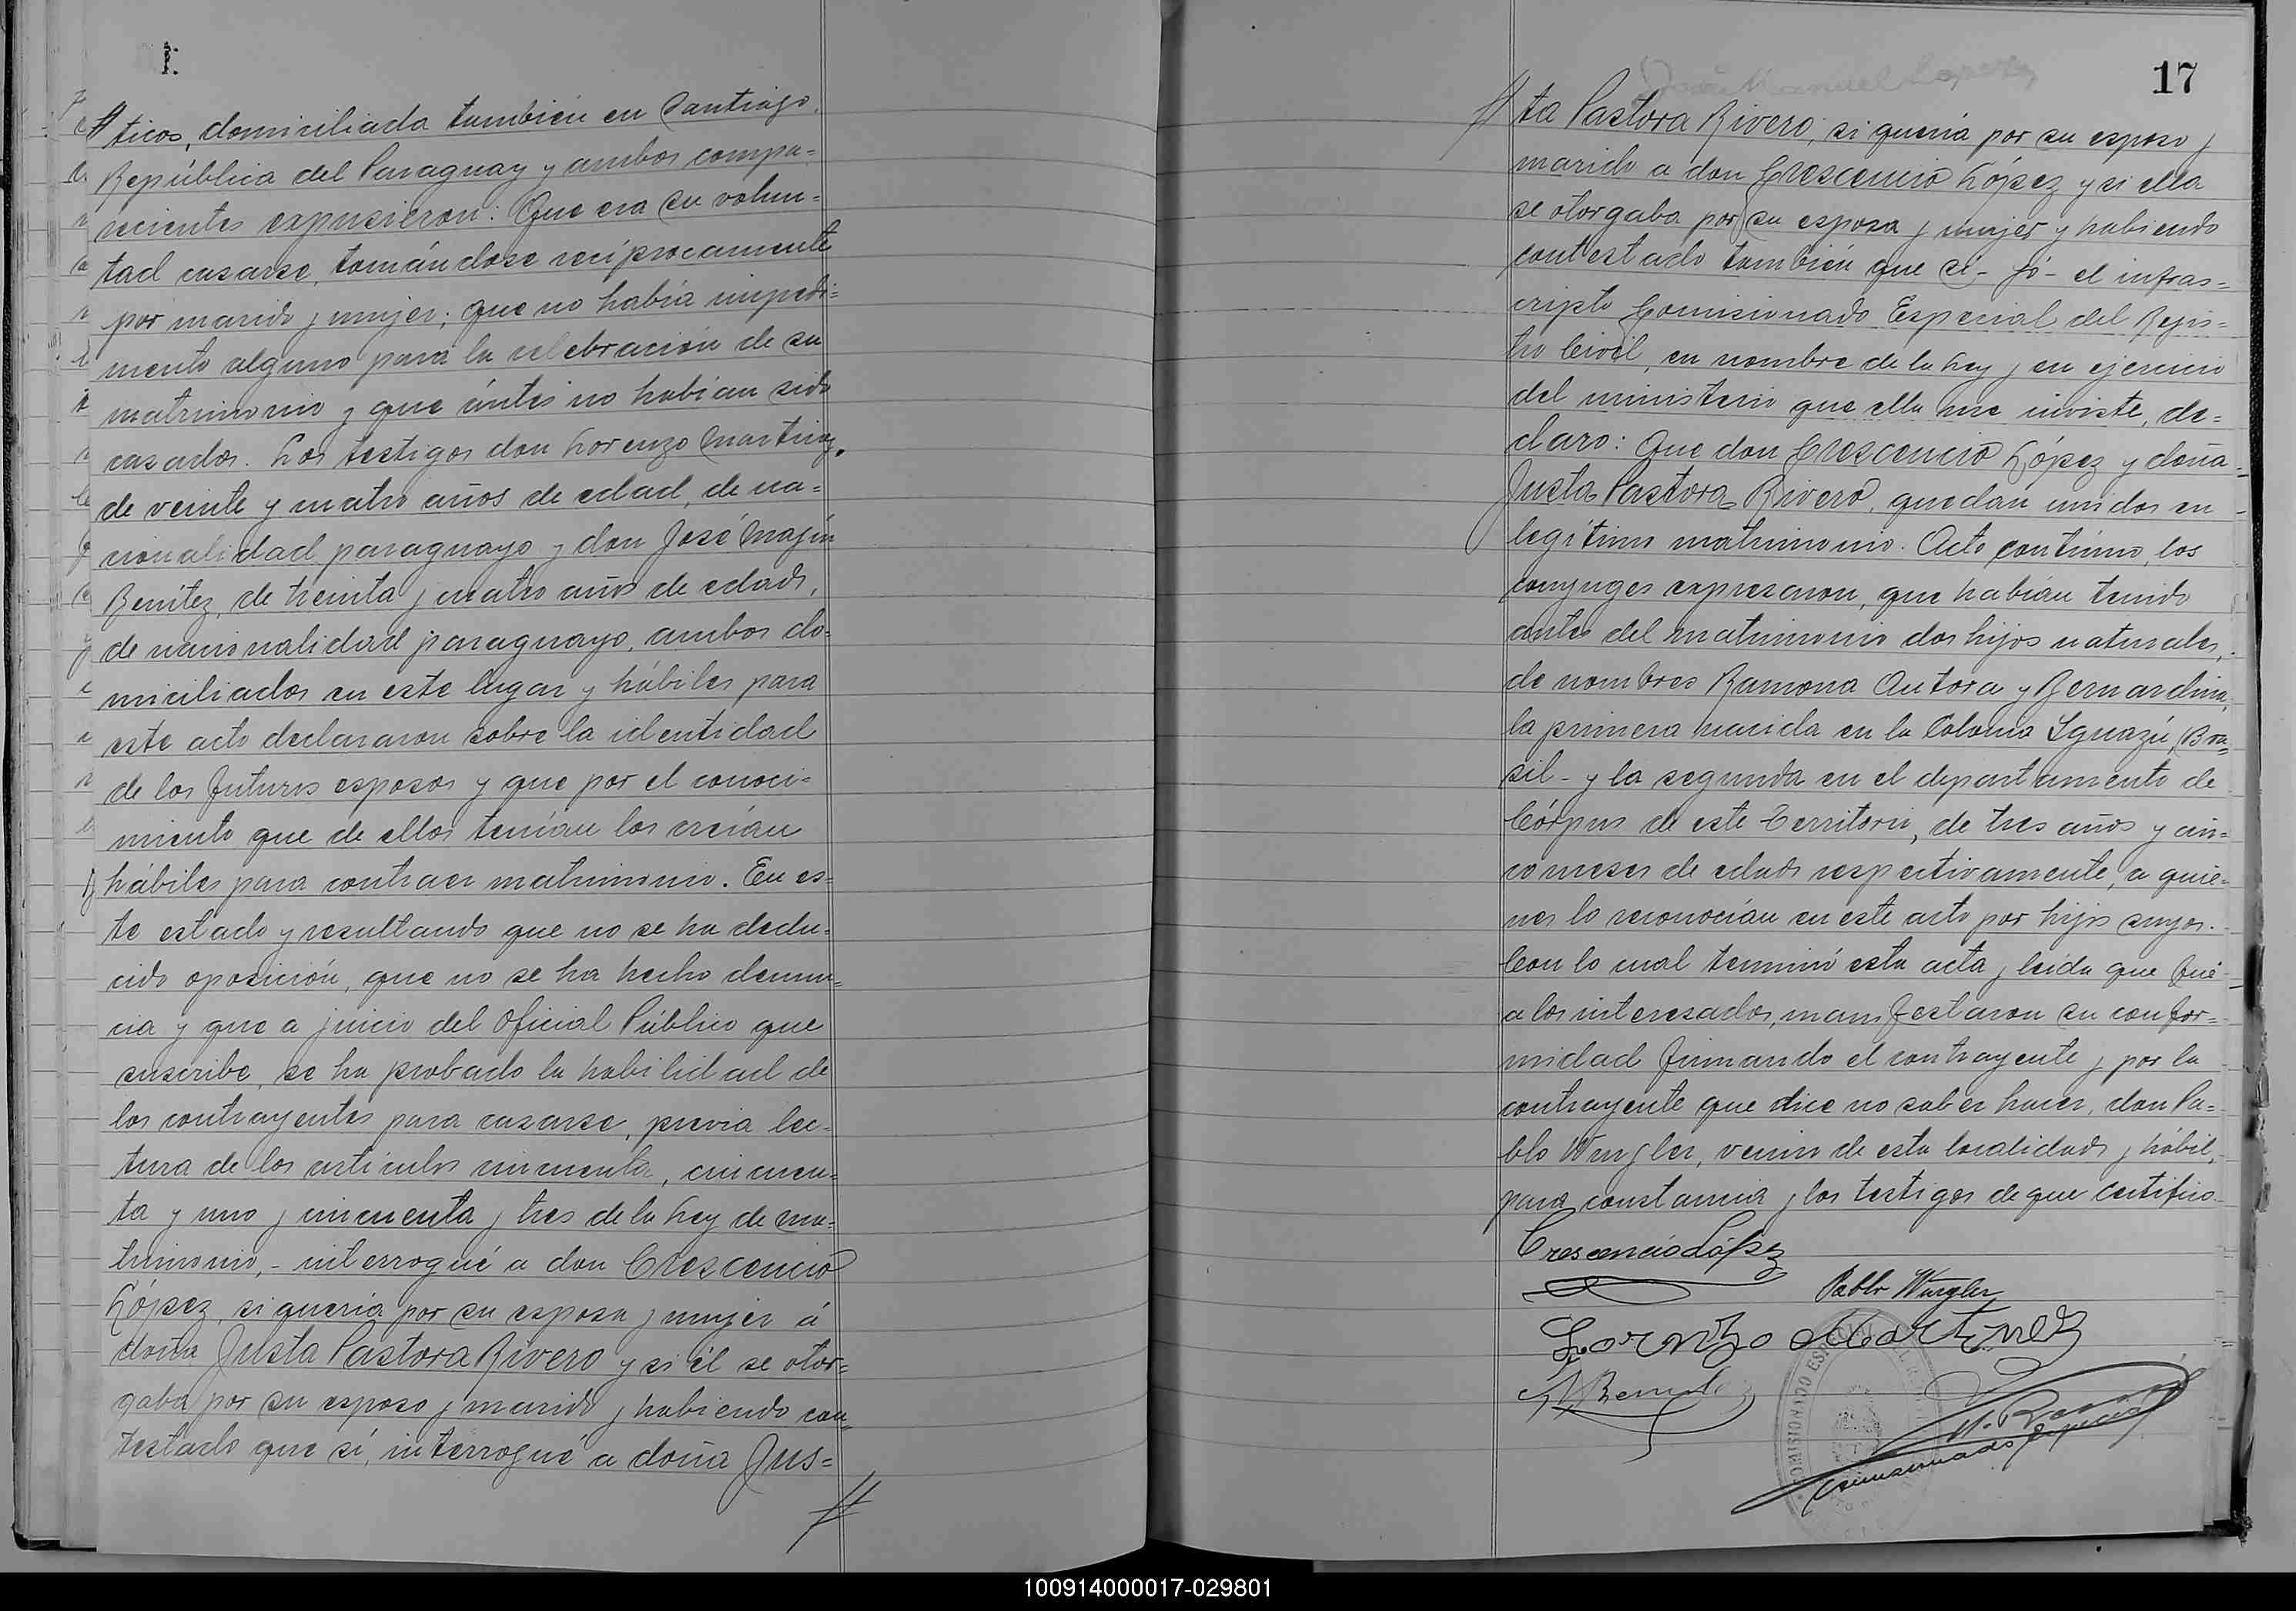 ticos, domiciliada también en Santiago,
República del Paraguay y ambos compa=
recientes expusieron: Que era su volun=
tad casarse, tomándose recíprocamente
por marido y mujer; que no había impedi=
mento alguno para la celebración de su
matrimonio y que ántes no habían sido
casados. Los testigos don Lorenzo Martinez,
de veinte y cuatro años de edad, de na=
cionalidad paraguayo y don José Magín
Benítez, de treinta y cuatro años de edad,
de nacionalidad paraguayo, ambos do=
miciliados en este lugar y hábiles para
este acto declararon sobre la identidad
de los futuros esposos y que por el conoci=
miento que de ellos tenían los creían
hábiles para contraer matrimonio. En es=
te estado y resultando que no se ha dedu=
cido oposición, que no se ha hecho denun=
cia y que a juicio del Oficial Público que
suscribe, se ha probado la habilidad de
los contrayentes para casarse, previa lec=
tura de los artículos cincuenta, cincuen=
ta y uno y cincuenta y tres de la Ley de ma=
trimonio, - interrogué a don Crescencio
López, si quería por su esposa y mujer á
doña Justa Pastora Rivero y si él se otor=
gaba por su esposo y marido y habiendo con=
testado que sí, interrogué a doña Jus=
17
ta Pastora Rivero, si quería por su esposo y
marido a don Crescencio López y si ella
se otorgaba por su esposa y mujer y habiendo
contestado también que sí - yó - el infras=
cripto Comisionado Especial del Regis=
tro Civil, en nombre de la Ley y en ejercicio
del ministerio que ella me inviste, de=
claro: Que don Crescencio López y doña
Justa Pastora Rivero, quedan unidos en
legítimo matrimonio. Acto contínuo, los
conyuges expresaron, que habían tenido
antes del matrimonio dos hijos naturales,
de nombres Ramona Autora y Bernardina,
la primera nacida en la Colonia Iguazú, (Bra=
sil - y la segunda en el departamento de
Córpus de este Territorio, de tres años y cin=
co meses de edad respectivamente, a quie=
nes lo reconocían en este acto por hijos suyos.
Con lo cual terminó esta acta y leída que fué
a los interesados, manifestaron su confor=
midad firmando el contrayente y por la
contrayente que dice no saber hacer, don Pa=
blo Wurgler, vecino de esta localidad y hábil,
para constancia y los testigos de que certifico.
Crescencio López
Pablo Wurgler
Lorenzo Martinez
Comisionado Especial
100914000017-029801